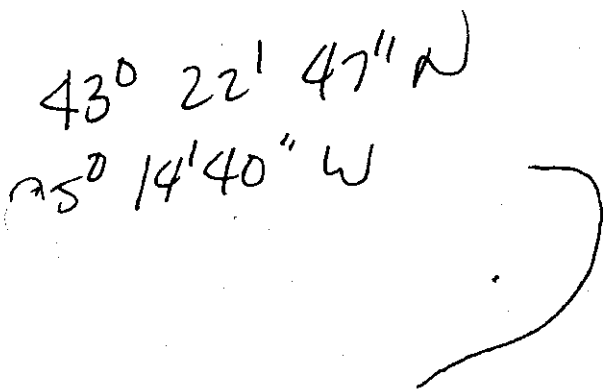 43° 22' 47" N
75° 14' 40" W